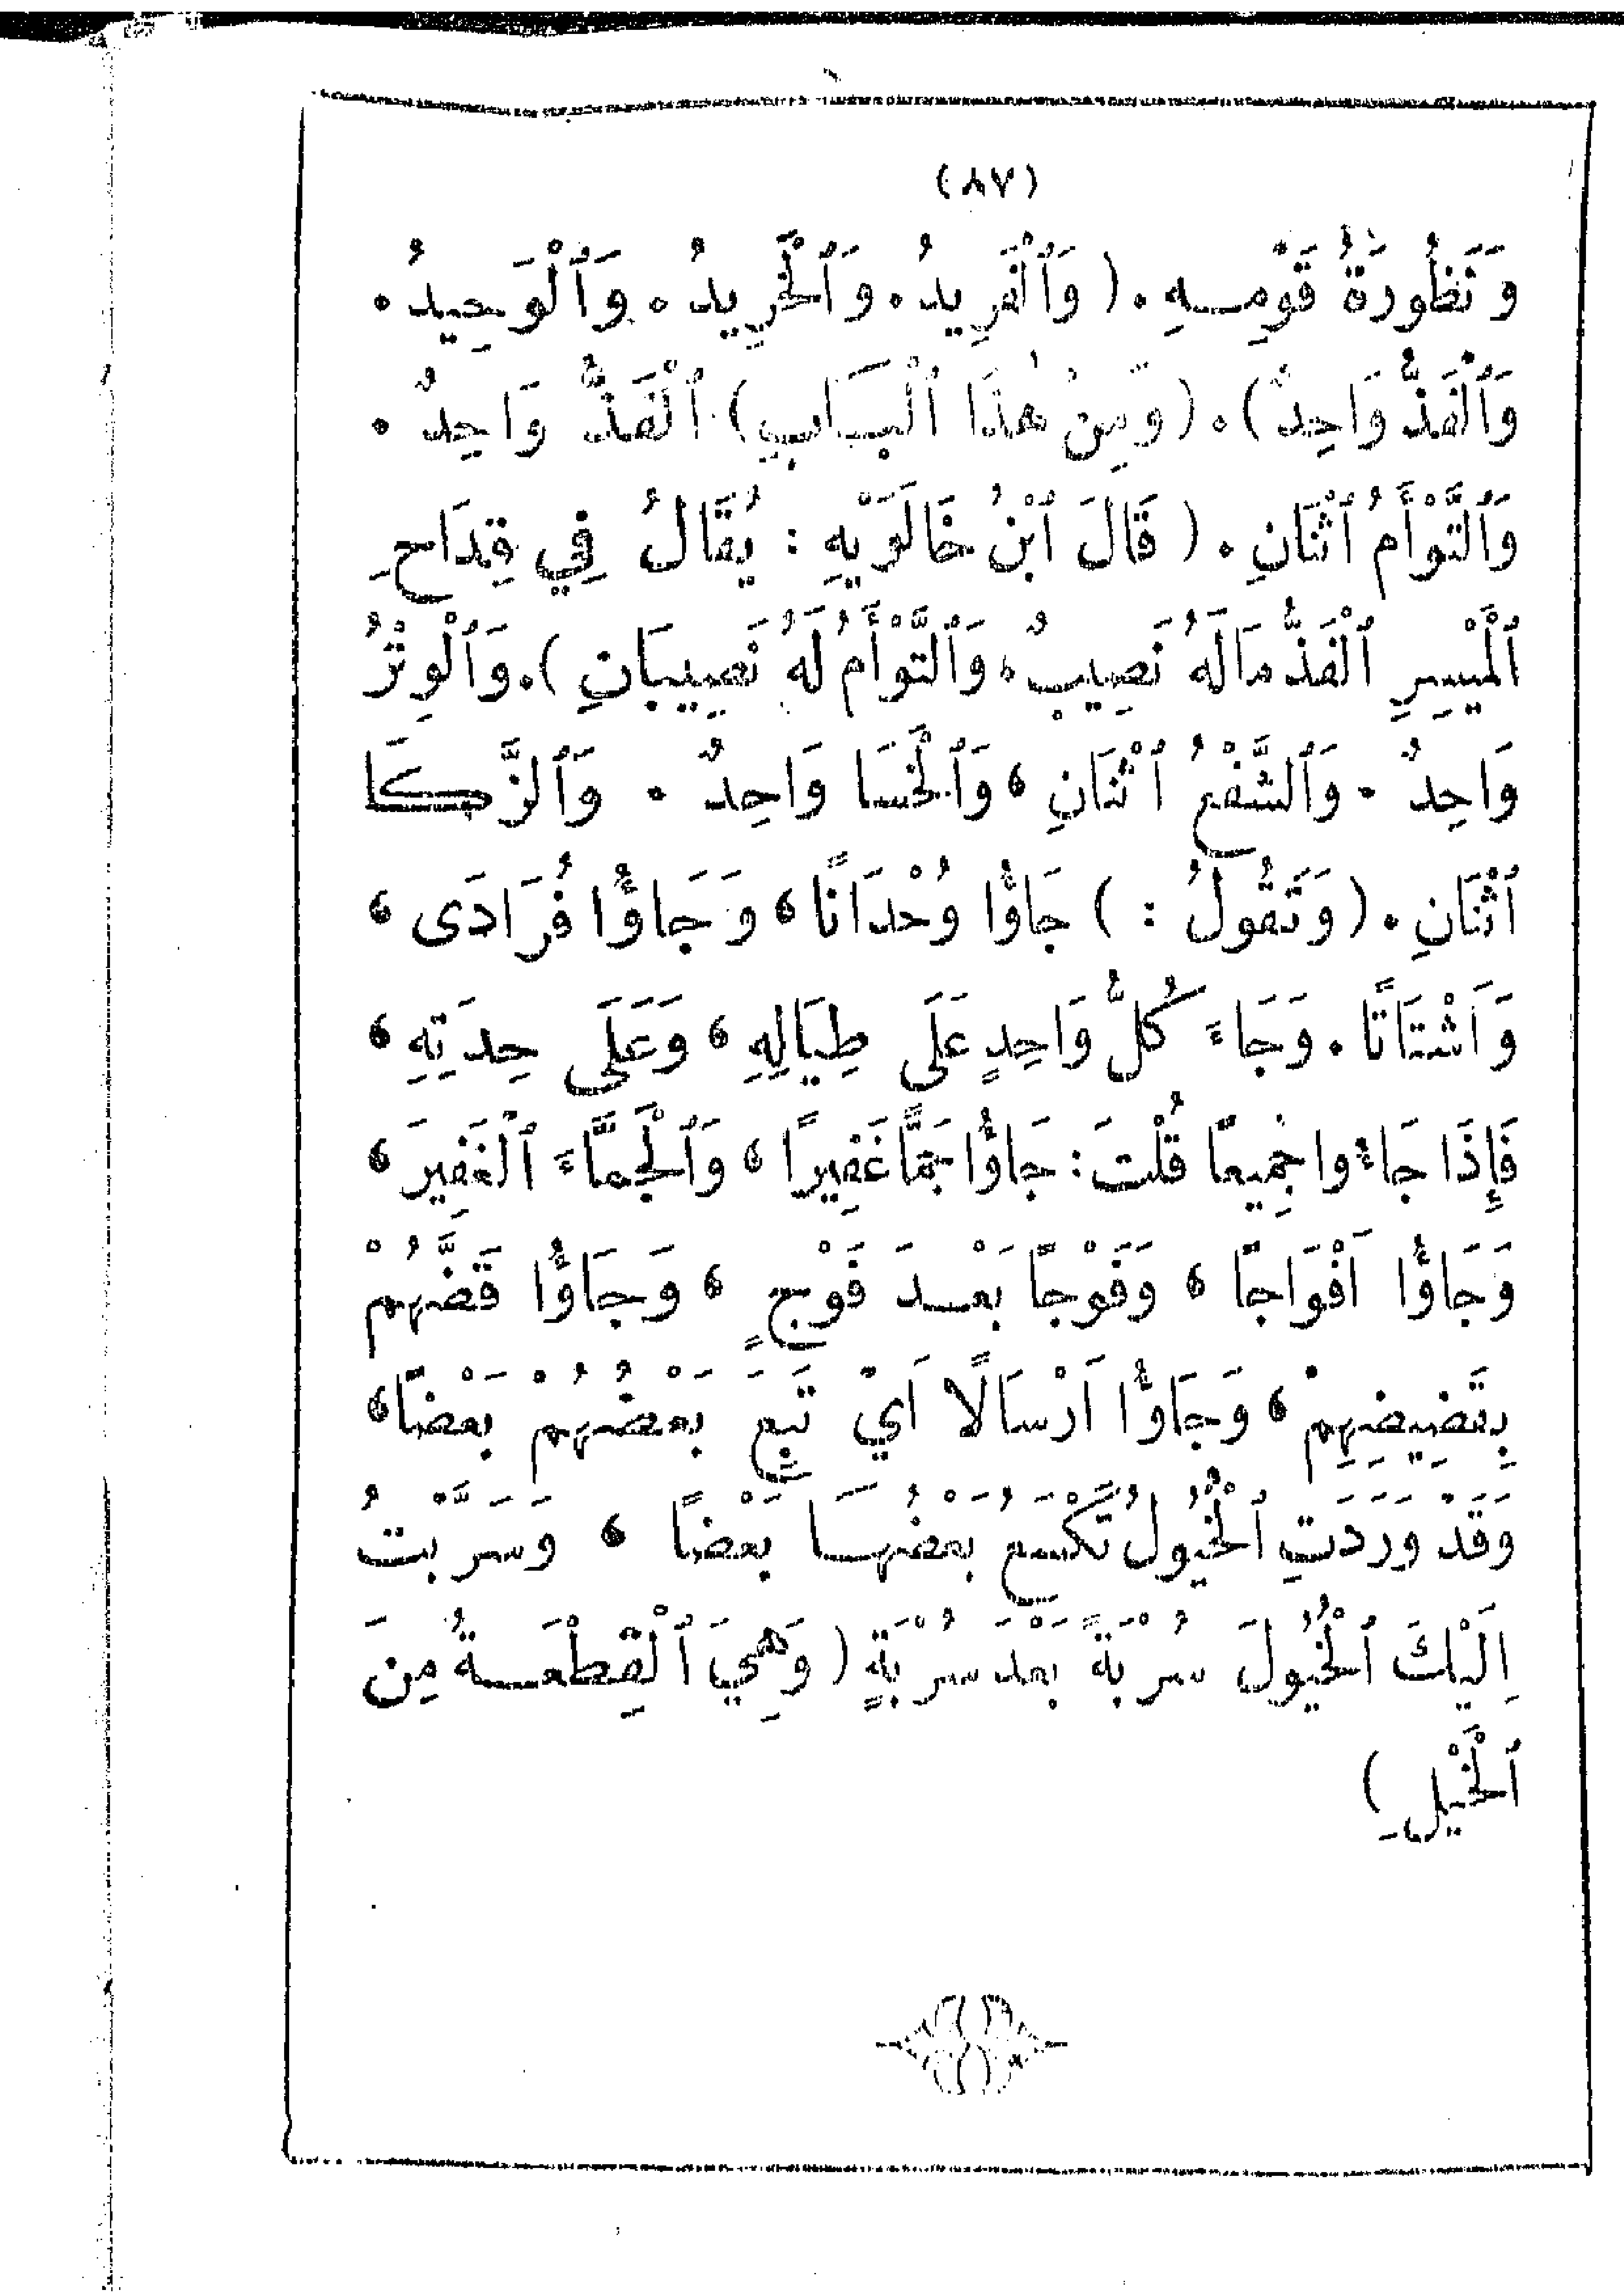 (٨٧)
وَنَظُورَةُ قَوْمِهِ. (وَٱلْفَرِيدُ. وَٱلْخَرِيدُ. وَٱلْوَحِيدُ.
وَٱلْفَذُّ وَاحِدٌ). (وَمِنْ هٰذَا ٱلْبَابِ) ٱلْفَذُّ وَاحِدٌ.
وَٱلتَّوْأَمُ ٱثْنَانِ. (قَالَ ٱبْنُ خَالَوَيْهِ: يُقَالُ فِي قِدَاحِ
ٱلْمَيْسِرِ ٱلْفَذُّ مَا لَهُ نَصِيبٌ، وَٱلتَّوْأَمُ لَهُ نَصِيبَانِ). وَٱلْوِتْرُ
وَاحِدٌ. وَٱلشَّفْعُ ٱثْنَانِ، وَٱلْخَسَا وَاحِدٌ. وَٱلزَّكَا
ٱثْنَانِ. (وَتَقُولُ:) جَاؤُا وُحْدَانًا، وَجَاؤُا فُرَادَى،
وَاَشْتَاتًا. وَجَاءَ كُلُّ وَاحِدٍ عَلَى طِيَالِهِ، وَعَلَى حِدَتِهِ،
فَإِذَا جَاءُوا جَمِيعًا قُلْتَ: جَاؤُا جَمًّا غَفِيرًا، وَٱلْجَمَّاءَ ٱلْغَفِيرَ،
وَجَاؤُا اَفْوَاجًا، وَفَوْجًا بَعْدَ فَوْجٍ، وَجَاؤُا قَضَّهُمْ
بِقَضِيضِهِمْ، وَجَاؤُا اَرْسَالًا اَيْ تَبِعَ بَعْضُهُمْ بَعْضًا،
وَقَدْ وَرَدَتِ ٱلْخُيُولُ تَكْسَعُ بَعْضُهَا بَعْضًا، وَسَرَّبْتُ
اِلَيْكَ ٱلْخُيُولَ سُرْبَةً بَعْدَ سُرْبَةٍ (وَهِيَ ٱلْقِطْعَةُ مِنَ
ٱلْخَيْلِ)